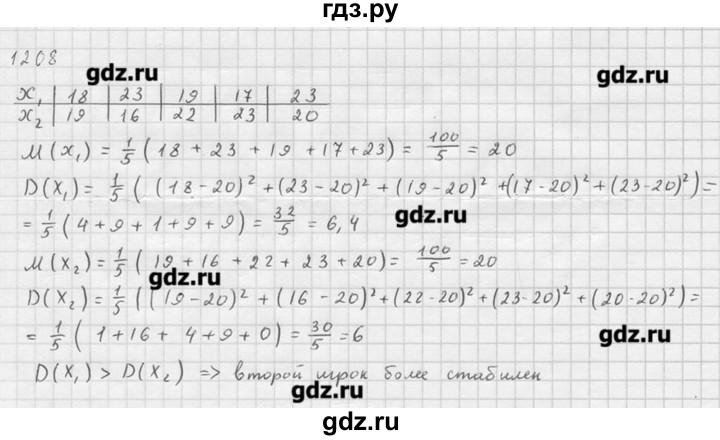 гдз.ру
1208
gdz.ru gdz.ru
x₁ | 18 | 23 | 19 | 17 | 23
x₂ | 19 | 16 | 22 | 23 | 20
M(x₁) = 1/5 (18 + 23 + 19 + 17 + 23) = 100/5 = 20
D(x₁) = 1/5 ((18-20)² + (23-20)² + (19-20)² + (17-20)² + (23-20)²) =
= 1/5 (4+9+1+9+9) = 32/5 = 6,4
gdz.ru
M(x₂) = 1/5 (19 + 16 + 22 + 23 + 20) = 100/5 = 20
gdz.ru
D(x₂) = 1/5 ((19-20)² + (16-20)² + (22-20)² + (23-20)² + (20-20)²) =
= 1/5 (1+16+4+9+0) = 30/5 = 6
gdz.ru
D(x₁) > D(x₂) => второй игрок более стабилен
gdz.ru
gdz.ru